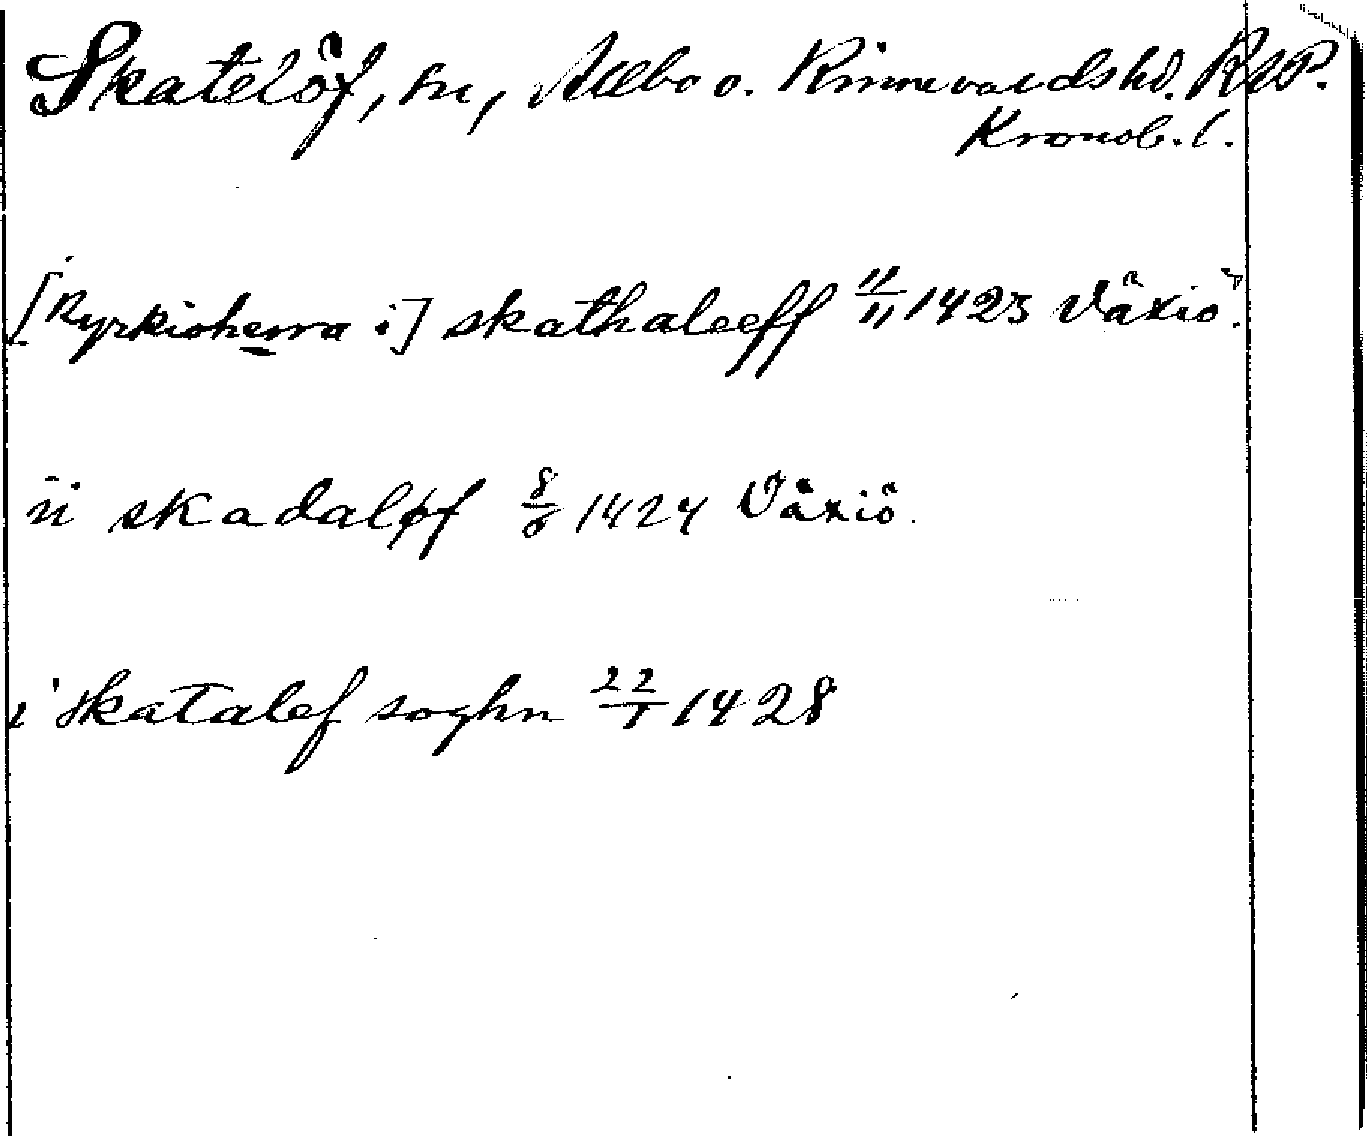 Skatelöf, sn, Allbo o. Kinnevaldshd. RAP.
Kronob. l.
[Kyrkioherra i] skathaleeff 11/11 1423 Växiö.
ii skadaløf 8/6 1424 Växiö.
i skatalef soghn 22/1 1428